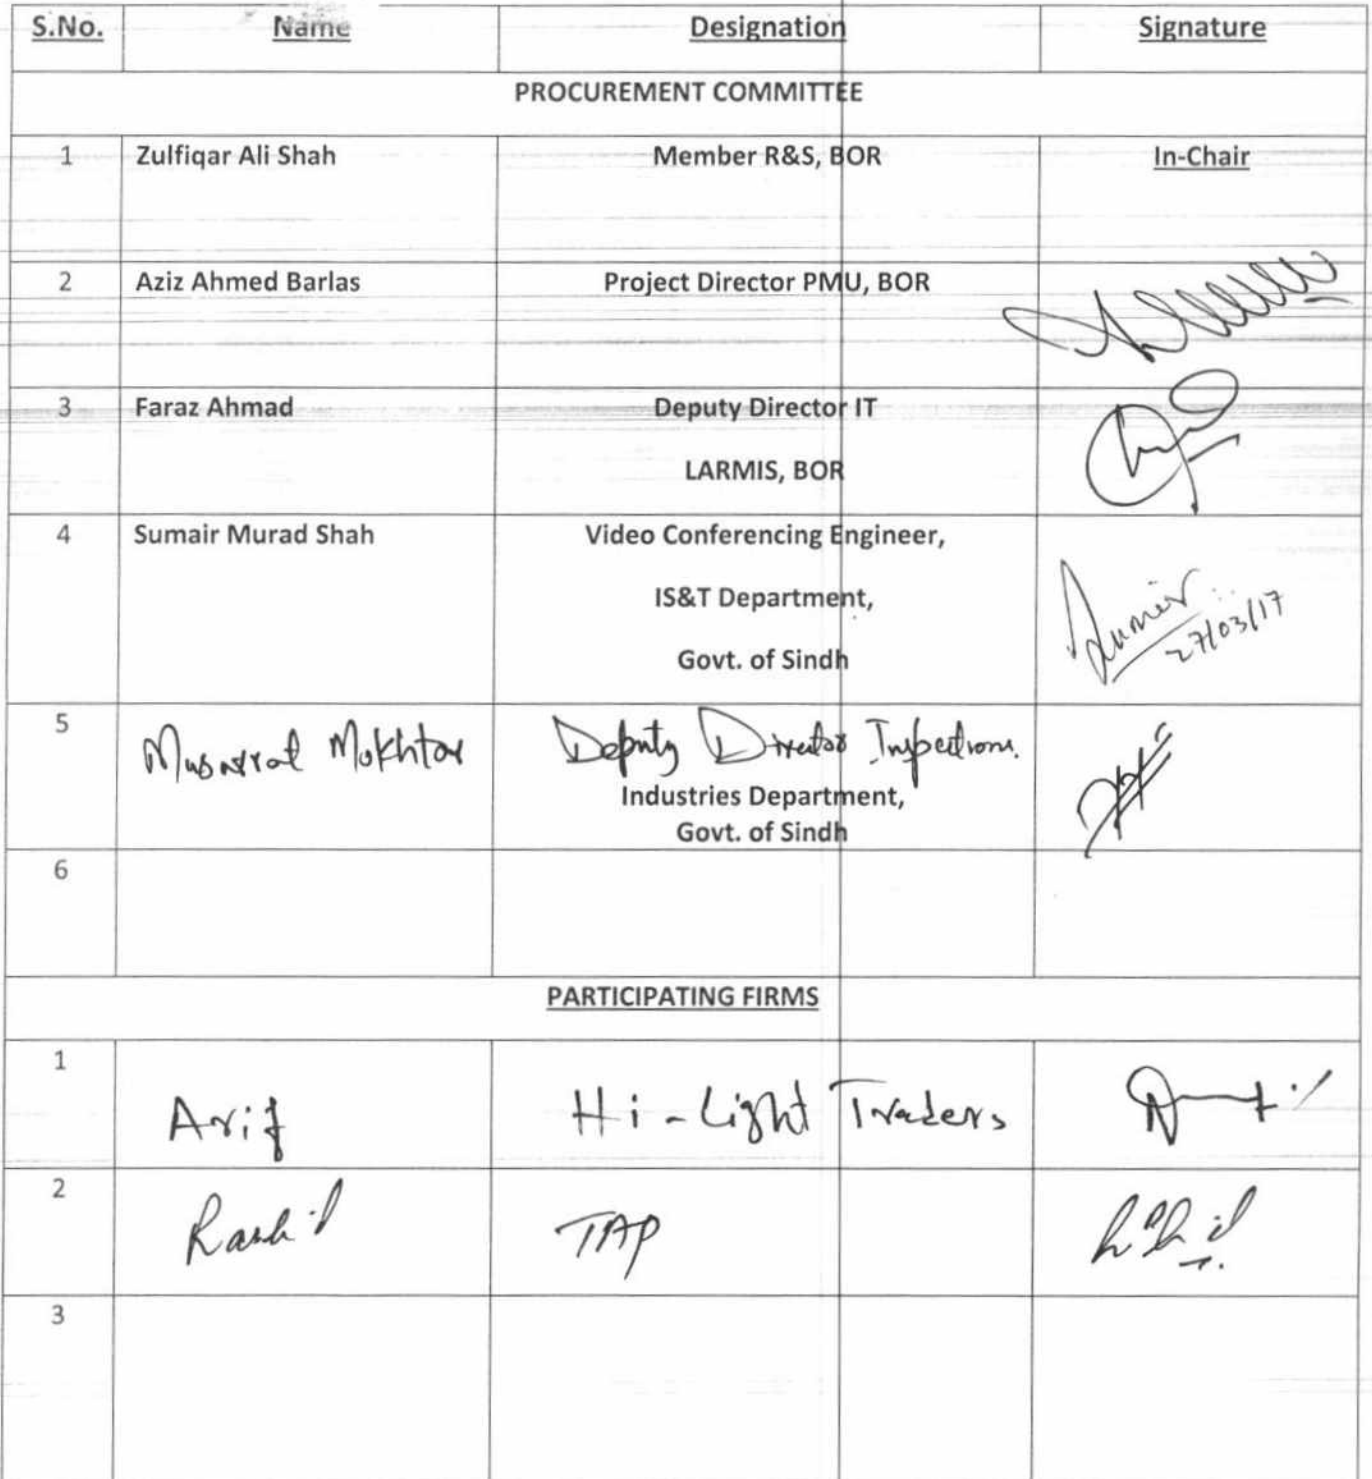 S.No. Name Designation Signature
PROCUREMENT COMMITTEE
1 Zulfiqar Ali Shah Member R&S, BOR In-Chair
2 Aziz Ahmed Barlas Project Director PMU, BOR
3 Faraz Ahmad Deputy Director IT
LARMIS, BOR
4 Sumair Murad Shah Video Conferencing Engineer,
IS&T Department,
Govt. of Sindh
Sumair
27/03/17
5 Musarrat Mokhtar Deputy Director Inspections.
Industries Department,
Govt. of Sindh
6
PARTICIPATING FIRMS
1 Arif Hi-Light Traders
2 Rashid TAP
3